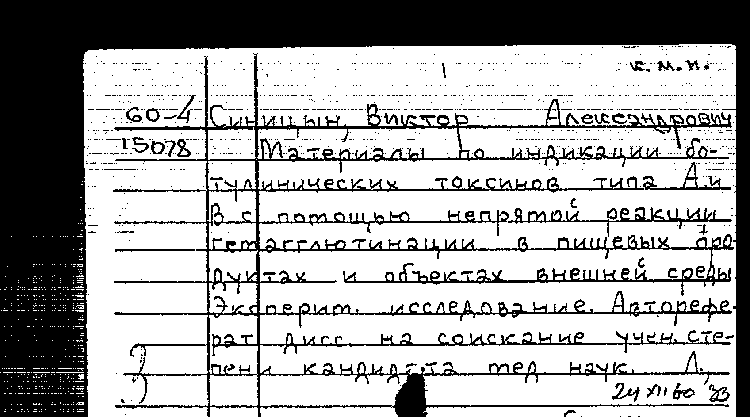 к.м.н.
60-4 Синицын, Виктор Александрович
15078 Материалы по индикации бо-
тулинических токсинов типа А и
В с помощью непрямой реакции
гемагглютинации в пищевых про-
дуктах и объектах внешней среды
Эксперим. исследование. Авторефе-
рат дисс. на соискание учен. сте-
пени кандидата мед наук. Л.,
3 24 XII 60